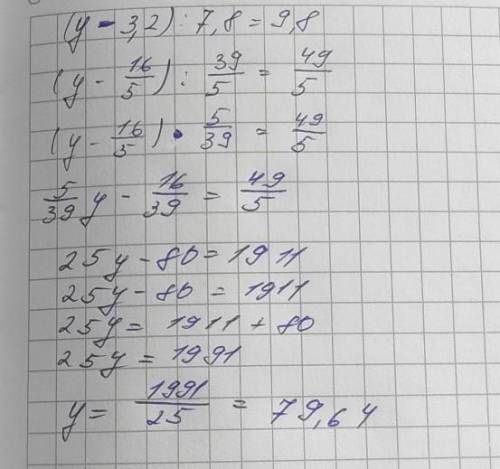 (y - 3,2) : 7,8 = 9,8
(y - 16/5) : 39/5 = 49/5
(y - 16/5) · 5/39 = 49/5
5/39 y - 16/39 = 49/5
25y - 80 = 1911
25y - 80 = 1911
25y = 1911 + 80
25y = 1991
y = 1991/25 = 79,64